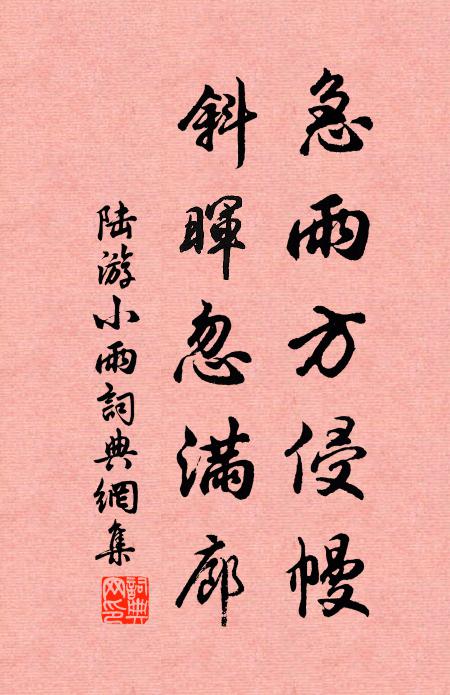 急雨方侵幔
斜暉忽滿廊
陆游小雨詞典網集
詞典网印